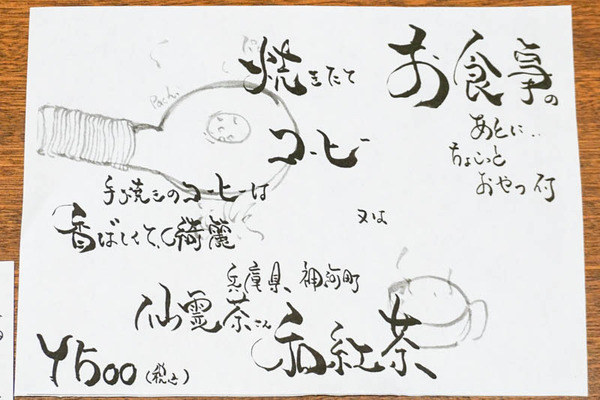 お食事の
あとに..
ちょこっと
おやつ付
焼きたて
コーヒー
Pachi
手焼きのコーヒーは
香ばしくて、綺麗
又は
兵庫県、神河町
仙霊茶さん
和紅茶
¥500(税込)